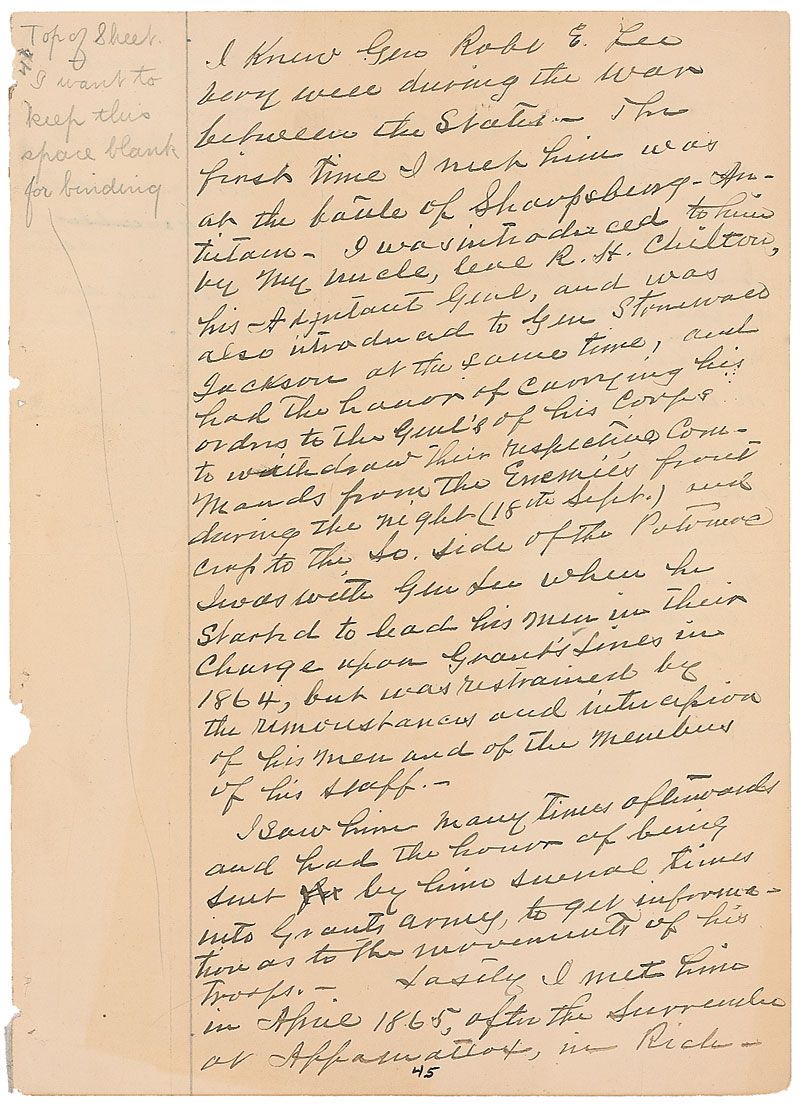 Top of Sheet.
I want to
keep this
space blank
for binding
I Knew Gen Robt E. Lee
very well during the war
between the States.- The
first time I met him was
at the battle of Sharpsburg - An-
tietam - I was introduced to him
by my uncle, Genl R. H. Chilton,
his Adjutant Genl, and was
also introduced to Gen Stonewall
Jackson at the same time, and
had the honor of carrying his
orders to the Genl's of his Corps
to withdraw their respective Com-
mands from the Enemie's front
during the night (18th Sept.) and
cross to the So. side of the Potomac
I was with Gen Lee when he
Started to lead his men in their
Charge upon Grant's Lines in
1864, but was restrained by
the remonstances and
of his men and of the Members
of his staff.-
I saw him many times afterwards
and had the honor of being
sent by him several times
into Grants army, to get informa-
tion as to the movements of his
troops.- Lastly I met him
in April 1865, after the Surrender
at Appomattox, in Rich-
45